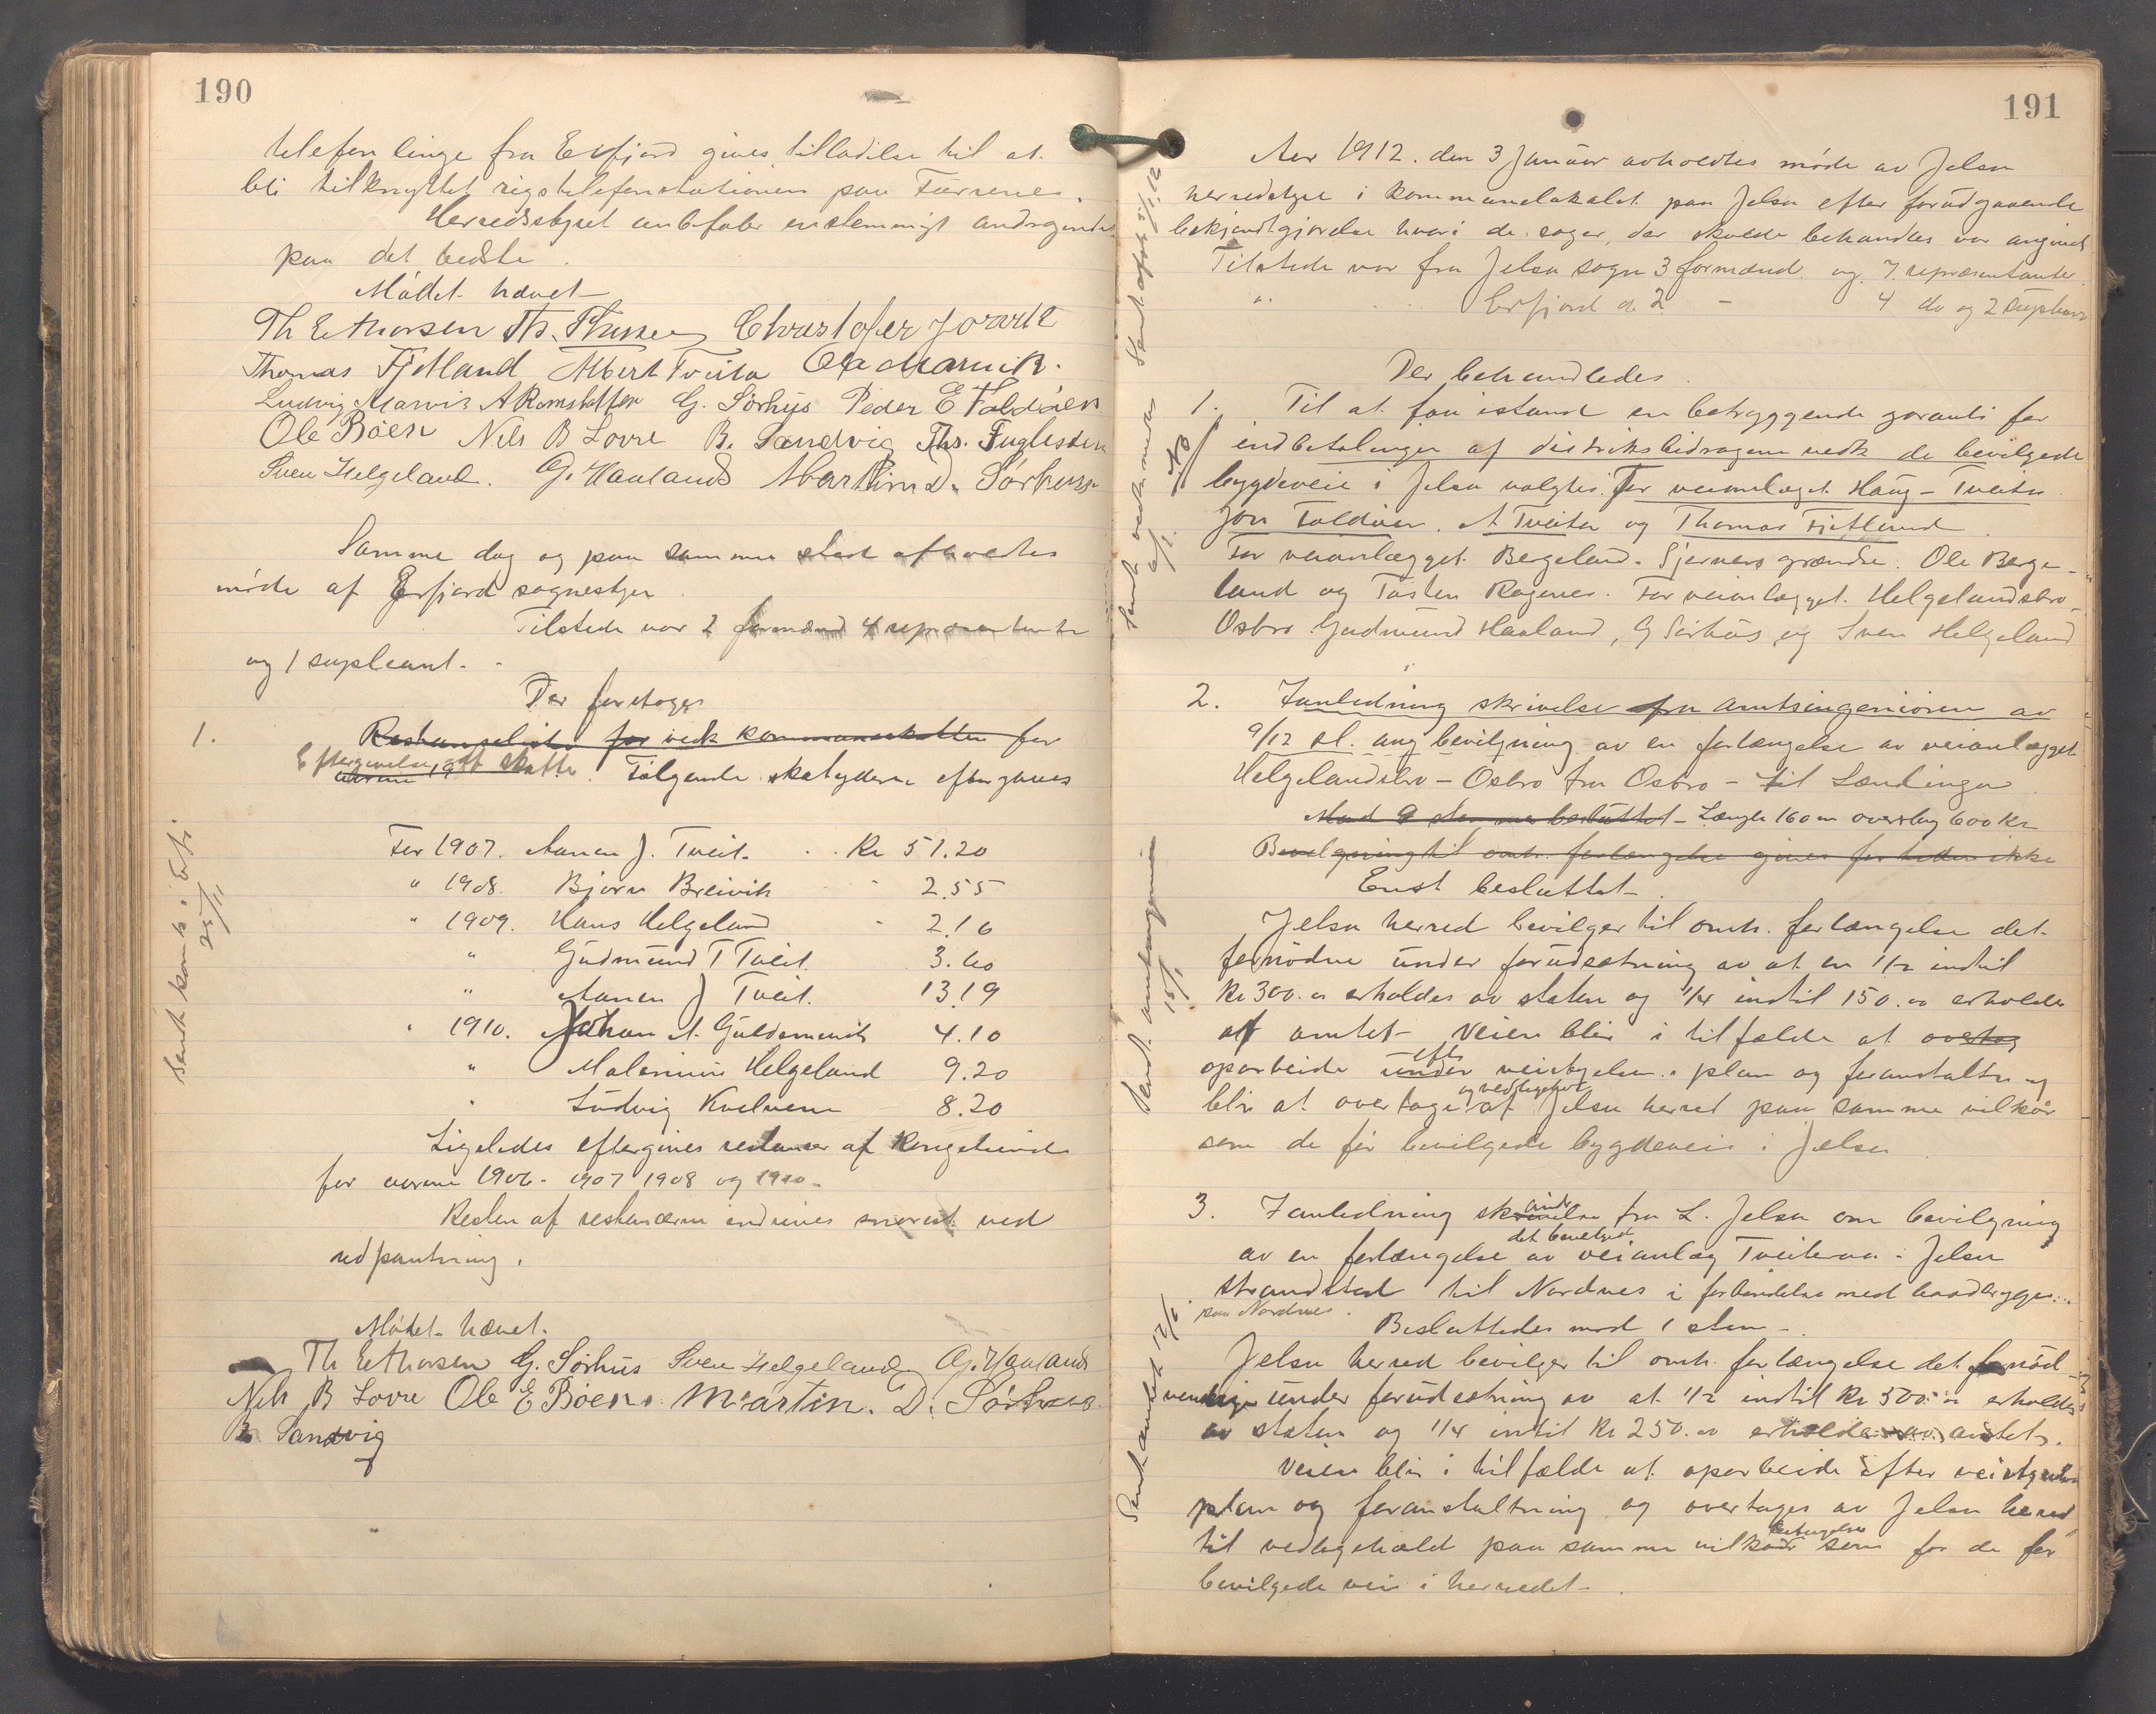 190
telefonlinge fra Erfjord gives tilladilse til at
bli tilknyttet rigstelefonstationen paa Førrenes.
Herredsstyret anbefaler enstemmigt andragendet
paa det bedste.
Mødet hævet
Th E Thorsen Th. Christofer
Thomas Fjetland Albert Tveita Ola Marvik.
Ludvig Marvik A Ramstatter G. Sørhus Peder E Foldøen
Ole Bøen Nils B Lovre B. Sandvig Ths. Fuglesten
Sven Helgeland. G. Havland Martin D. Sørhus
Samme dag og paa samme sted afholdtes
møde af Erfjord sognestyre.
Tilstede var 2 formænd 4 repræsentanter
og 1 supleant.
Der foretoges
1. Restanseliste for vedk kommuneskatten for
aarene 19 Eftergivelse af skatte. Følgende skatydere eftergaves
For 1907. Aanen J. Tveit. Kr 51.20
" 1908. Bjørn Breivik 2.55
" 1909. Hans Helgeland 2.16
" Gudmund T Tveit. 3.60
" Aanen J Tveit. 13.19
" 1910. Johan A. Guldsmundt 4.10
" Malenius Helgeland 9.20
" Ludvig Kvelven 8.20
Ligeledes eftergives restanser af
for aarene 1906. 1907 1908 og 1910.
Resten af restanserne indrives snarest ved
udpantning.
Mødet hævet.
Th E Thorsen G. Sørhus Sven Helgeland G. Havland
Nils B Lovre Ole E Bøen. Martin. D. Sørhus.
B Sandvig
Sendt i Erfj. 25/11
191
Aar 1912. den 3 Januar avholdtes møde av Jelsa
herredstyre i kommunelokalet paa Jelsa efter forudgaaende
bekjendtgjørelse hvori de sager, der skulde behandles var angivet
Tilstede var fra Jelsa sogn 3 formænd og 7 repræsentanter.
" Erfjord do 2 - 4 do og 2 supleant
Der behandledes.
1. Til at faa istand en betryggende garanti for
indbetalingen af distriksbidragene vedk de bevilgede
bygdeveie i Jelsa valgtes. For veianlæget Haug - Tveiten
Jon Foldøen. A Tveita og Thomas Fjetland
For veianlægget Bergeland - Hjernes grændse. Ole Berge-
land og Tosten Ragnes. For veianlægget Helgelandsbro-
Osbro Gudmund Havland, G Sørhus og Sven Helgeland
2. I anledning skrivelse fra amtsingeniøren av
9/12 sl. ang bevilgning av en forlængelse av veianlægget
Helgelandsbro - Osbro fra Osbro - til Lændingen
Mod 9 stemmer besluttet - Længde 160 m overslag 600 kr
Bevilgning til omh. forlængelse gives for tiden ikke
Enst besluttet.
Jelsa herred bevilger til omh. forlængelse det
fornødne under forudsetning av at en 1/2 indtil
kr 300.00 erholdes av staten og 1/4 indtil 150.00 erholdes
af amtet Veien blir i tilfælde at overtag
oparbeide under efter veistyrelsens plan og foranstaltning
blir at overtage og vedligeholde af Jelsa herred paa samme vilkår
som de før bevilgede bygdeveie i Jelsa.
3. I anledning skrivelse andr fra L. Jelsa om bevilgning
av en forlængelse av det bevilgede veianlæg Tveiteraa - Jelsa
strandsted til Nordnes i forbindelse med baadbrygge
paa Nordnes.
Besluttedes mod 1 stem.
Jelsa herred bevilger til omh. forlængelse det fornød-
vendige under forudsetning av at 1/2 indtil kr 500.00 erholdes
av staten og 1/4 indtil kr 250.00 erholdes av amtet.
Veien blir i tilfælde at oparbeide efter veistyrelsens
plan og foranstaltning og overtages av Jelsa herred
til vedligehold paa samme vilkaar betingelser som for de før
bevilgede veie i herredet.
Sendt amtsingeniøren 15/1
Sendt amtet 12/1